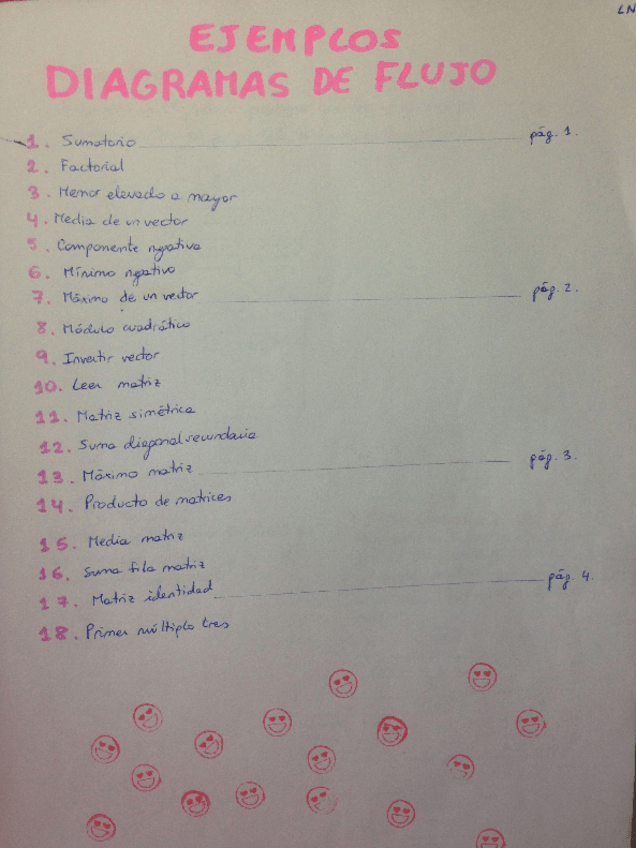 LN
EJEMPLOS
DIAGRAMAS DE FLUJO
1. Sumatorio pág. 1.
2. Factorial
3. Menor elevado a mayor
4. Media de un vector
5. Componente negativa
6. Mínimo negativo
7. Máximo de un vector pág. 2.
8. Módulo cuadrático
9. Invertir vector
10. Leer matriz
11. Matriz simétrica
12. Suma diagonal secundaria
13. Máximo matriz pág. 3.
14. Producto de matrices
15. Media matriz
16. Suma fila matriz
17. Matriz identidad pág. 4.
18. Primer múltiplo tres